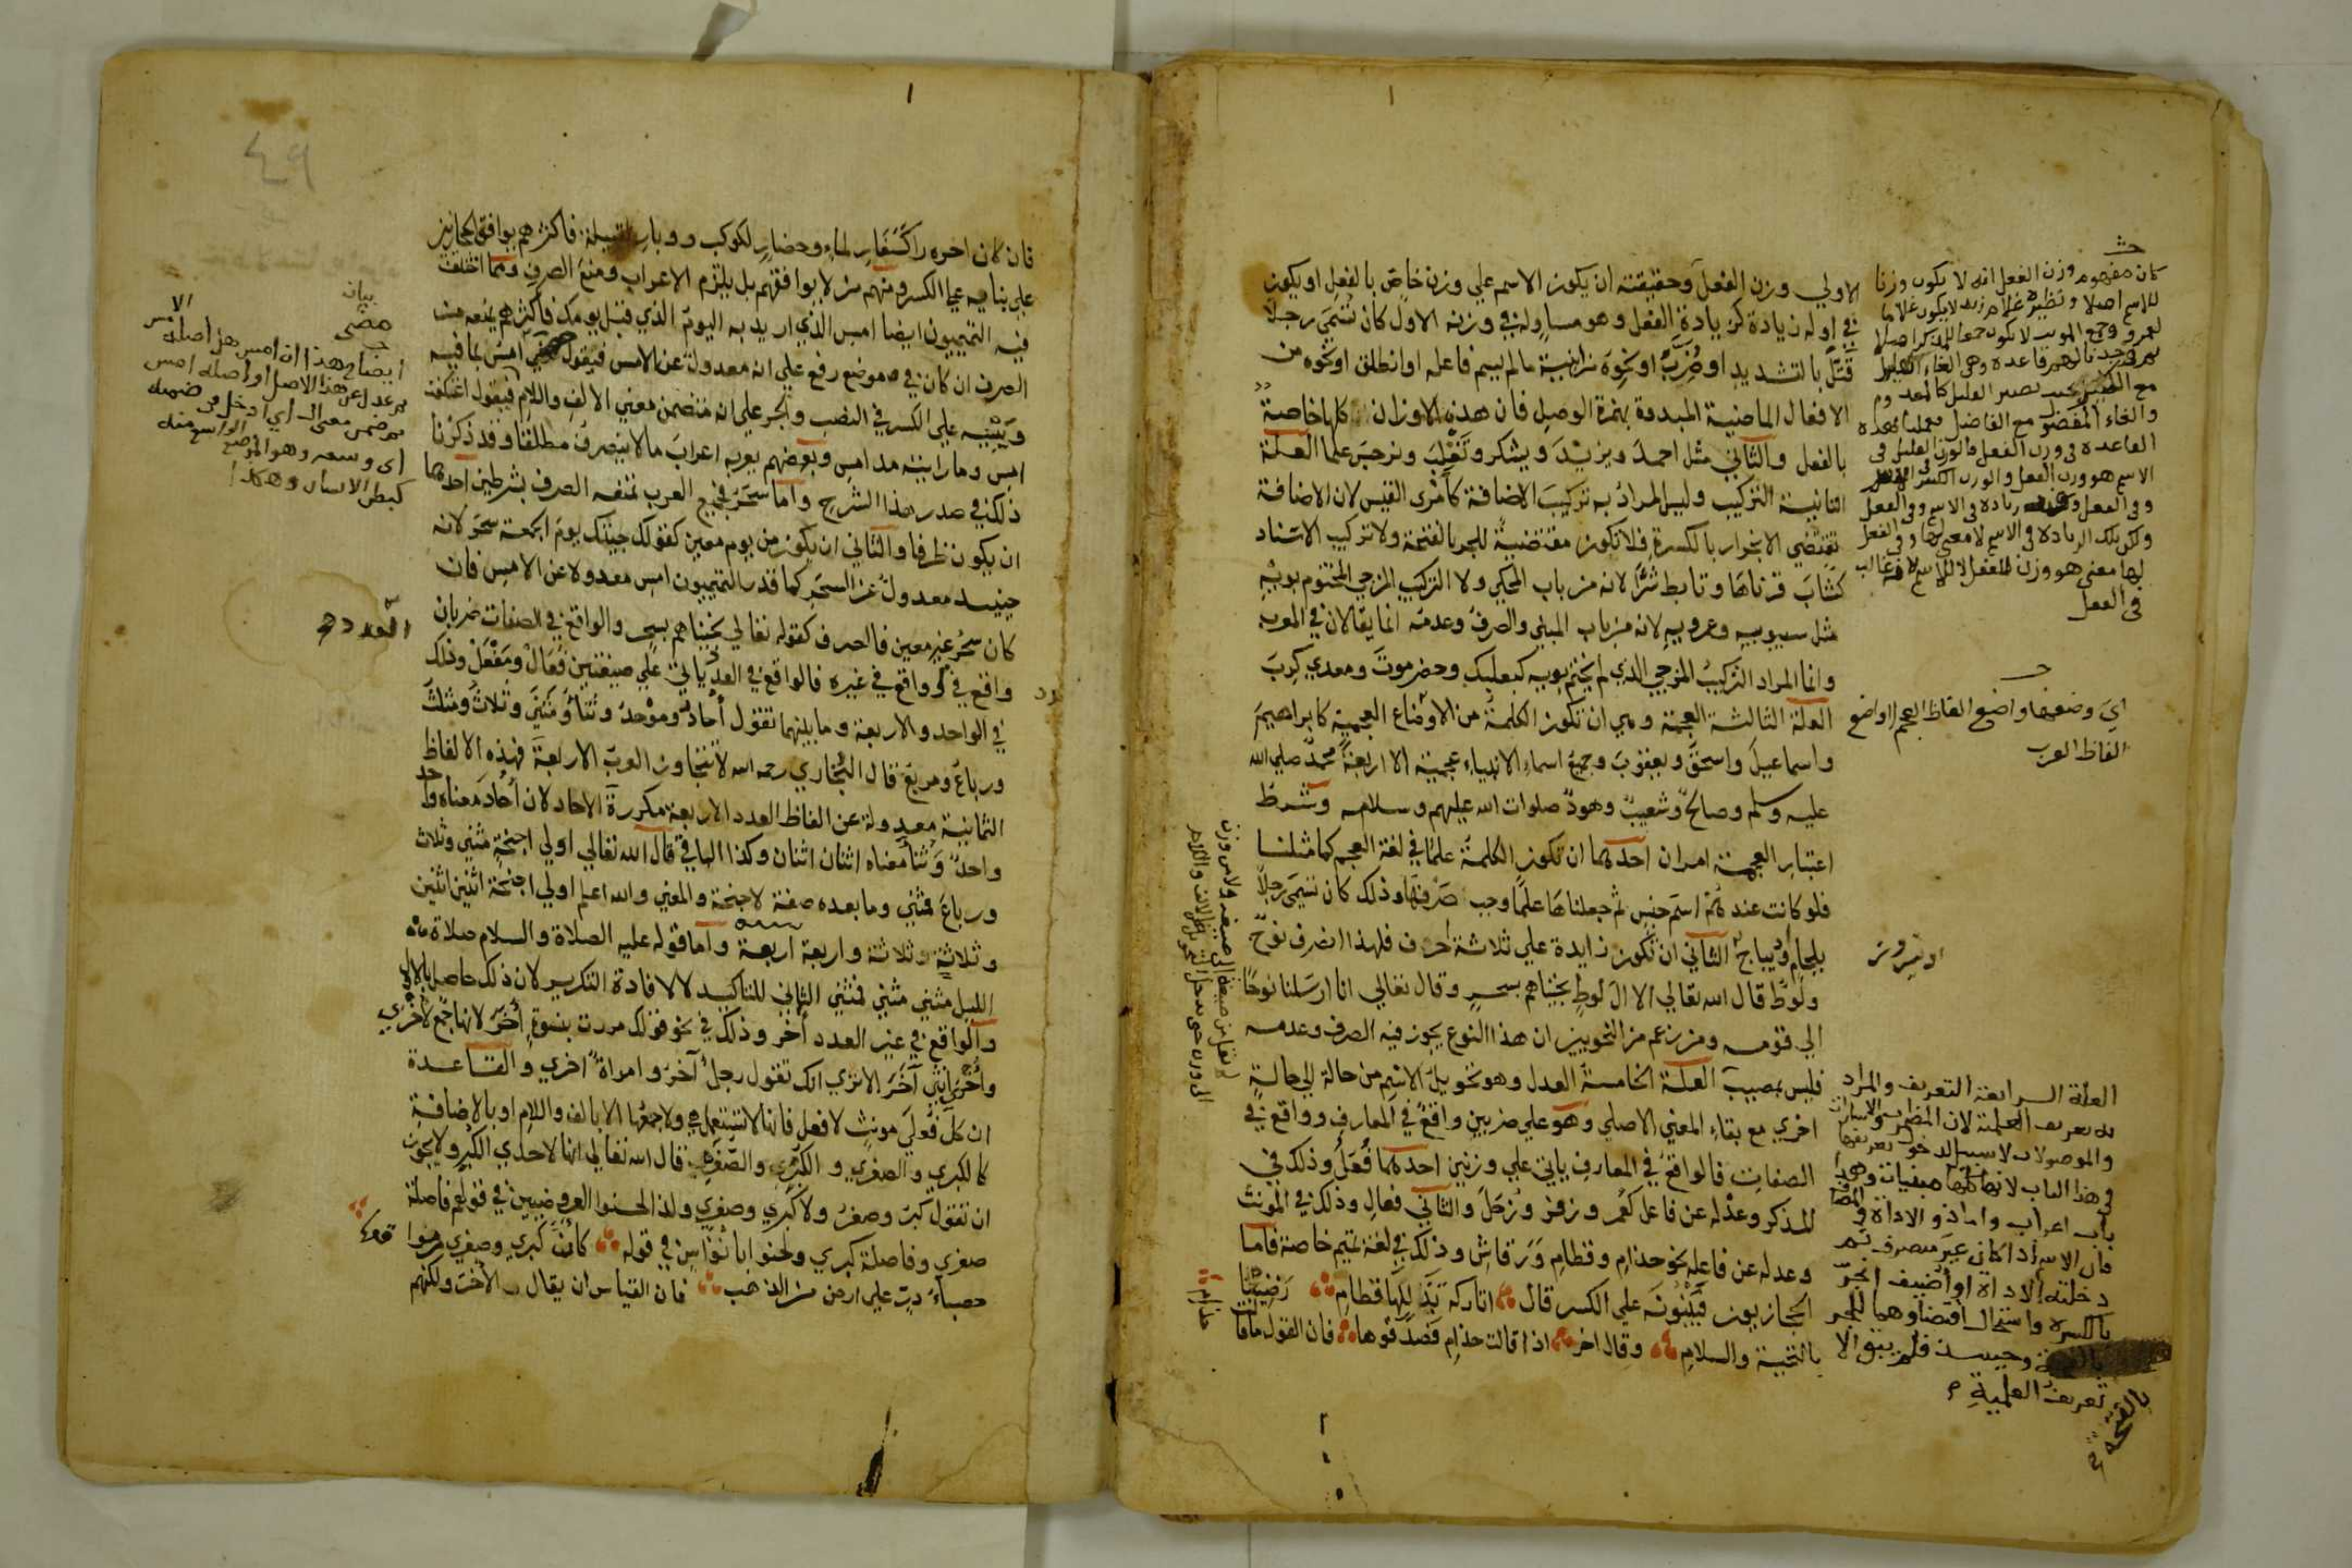 الاولي وزن الفعل وحقيقته ان يكون الاسم علي وزن خاص بالفعل او يكون
في اوله زيادة كزيادة الفعل وهو مساو له في وزنه الاول كان تسمي رجلا
قتل بالتشديد او ضرب او نحوه من ابنية ما لم يسم فاعله او انطلق او نحوه من
الافعال الماضية المبدوة بهمزة الوصل فان هذه الاوزان كلها خاصة
بالفعل والثاني مثل احمد ويزيد ويشكر وتغلب ونرجس علما العلة
الثانية التركيب وليس المراد به تركيب الاضافة كامرى القيس لان الاضافة
تقتضي الانجرار بالكسرة فلا تكون مقتضية للجر بالفتحة ولا تركيب الاسناد
كشاب قرناها وتابط شرا لانه من باب المحكي ولا التركيب المزجي المختوم بويه
مثل سيبويه وعمرويه لانه من باب المبني والصرف وعدمه انما يقالان في المعرب
وانما المراد التركيب المزجي الذي لم يختم بويه كبعلبك وحضرموت ومعدي كرب
العلة الثالثة العجمة وهي ان تكون الكلمة من الاوضاع العجمية كابراهيم
واسماعيل واسحق ويعقوب وجميع اسماء الانبياء عجمية الا اربعة محمد صلي الله
عليه وسلم وصالح وشعيب وهود صلوات الله عليهم وسلامه وشرط
اعتبار العجمة امران احدهما ان تكون الكلمة علما في لغة العجم كما مثلنا
فلو كانت عندهم اسم جنس ثم جعلناها علما وجب صرفها وذلك كان تسمي رجلا
بلجام وديباج الثاني ان تكون زايدة علي ثلاثة احرف فلهذا انصرف نوح
ولوط قال الله تعالي الا ال لوط نجيناهم بسحر وقال تعالي انا ارسلنا نوحا
الي قومه ومن زعم من النحويين ان هذا النوع يجوز فيه الصرف وعدمه
فليس بمصيب العلة الخامسة العدل وهو تحويل الاسم من حالة الي حالة
اخري مع بقاء المعني الاصلي وهو علي ضربين واقع في المعارف وواقع في
الصفات فالواقع في المعارف ياتي علي وزنين احدهما فعل وذلك في
المذكر وعدله عن فاعل كعمر وزفر وزحل والثاني فعال وذلك في المونث
وعدله عن فاعله نحو حذام وقطام ورقاش وذلك في لغة تميم خاصة فاما
الحجازيون فيبنونه علي الكسر قال اتاركة تدللها قطام رضينا
بالتحية والسلام وقال اخر اذا قالت حذام فصدقوها فان القول ما قالت
حذام
كان مفهوم وزن الفعل انه لا يكون وزنا
للاسم اصلا ونظيره غلام زيد لا يكون غلاما
اي وضعها واضع الفاظ العجم لا واضع
الفاظ العرب
العلة السرابعة التعريف والمراد
به تعريف العلمية لان المضمرات والاشارات
والموصولات لا سبيل لدخول تعريفها
في هذا الباب لانها كلها مبنيات وهذا
باب اعراب واما ذو الاداة والمضاف
فان الاسم اذا كان غير منصرف ثم
دخلته الاداة او اضيف انجر
بالكسرة واستحال اقتضاوهما للجر
بالفتحة وحينيذ فلم يبق الا
تعريف العلمية
بالفتحة
٤٩
فان كان اخره را كسفار لماء وحضار لكوكب ووبار لقبيلة فاكثرهم يوافق الحجازيين
علي بنايه علي الكسر ومنهم من لا يوافقهم بل يلتزم الاعراب ومنع الصرف ومما اختلف
فيه التميميون ايضا امس الذي اريد به اليوم الذي قبل يومك فاكثرهم يمنعه من
الصرف ان كان في موضع رفع علي انه معدول عن الامس فيقول مضي امس بما فيه
ويبنيه علي الكسر في النصب والجر علي انه متضمن معني الالف واللام فيقول اعتكفت
امس وما رايته مد امس وبعضهم يعربه اعراب ما لا ينصرف مطلقا وقد ذكرنا
ذلك في صدر هذا الشرح واما سحر فجميع العرب تمنعه الصرف بشرطين احدهما
ان يكون ظرفا والثاني ان يكون من يوم معين كقولك جيتك يوم الجمعة سحر لانه
حينيد معدول عن السحر كما قدر التميميون امس معدولا عن الامس فان
كان سحر غير معين فالصرف كقوله تعالي نجيناهم بسحر والواقع في الصفات ضربان
واقع في العدد وواقع في غيره فالواقع في العدد ياتي علي صيغتين فعال ومفعل وذلك
في الواحد والاربعة وما بينهما تقول احاد وموحد وثنا ومثني وثلاث ومثلث
ورباع ومربع قال البخاري رحمه الله لا تتجاوز العرب الاربعة فهذه الالفاظ
الثمانية معدولة عن الفاظ العدد الاربعة مكررة الاحاد لان احاد معناه واحد
واحد وثنا معناه اثنان اثنان وكذا الباقي قال الله تعالي اولي اجنحة مثني وثلاث
ورباع فمثني وما بعده صفة لاجنحة والمعني والله اعلم اولي اجنحة اثنين اثنين
وثلاثة وثلاثة واربعة اربعة واما قوله عليه الصلاة والسلام صلاة
الليل مثني مثني فمثني الثاني للتاكيد لا لافادة التكرير لان ذلك حاصل بالاول
والواقع في غير العدد اخر وذلك في نحو قولك مررت بنسوة اخر لانها جمع لاخري
واخري انثي آخر الا تري انك تقول رجل آخر وامراة اخري والقاعدة
ان كل فعلي مونث لافعل فانها لا تستعمل هي ولا جمعها الا بالالف واللام او بالاضافة
كالكبري والصغري والكبر والصغر قال الله تعالي انها لاحدي الكبر ولا يجوز
ان تقول كبر وصغر ولا كبري وصغري ولذا لحنوا العروضيين في قولهم فاصلة
صغري وفاصلة كبري ولحنوا ابا نواس في قوله كان كبري وصغري من فواقعها
حصباء در علي ارض من الذهب فان القياس ان يقال الاخر ولكنهم
بيان
مضي
العدد